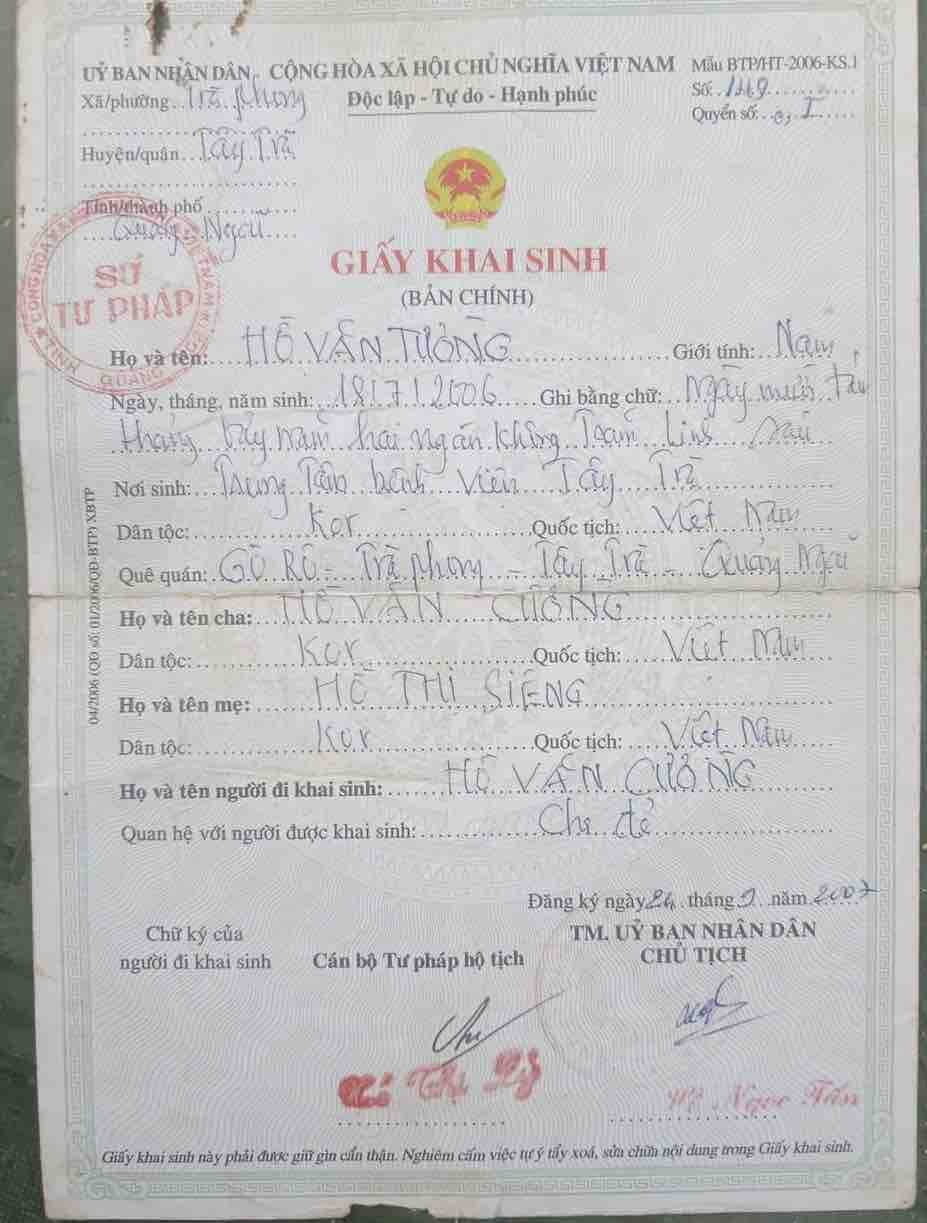 UỶ BAN NHÂN DÂN
CỘNG HÒA XÃ HỘI CHỦ NGHĨA VIỆT NAM
Mẫu BTP/HT-2006-KS.1
Xã/phường Trà phong
Độc lập - Tự do - Hạnh phúc
Số:
Quyển số: I
Huyện/quận Tây Trà
Tỉnh/thành phố
Quảng Ngãi
SỞ
TƯ PHÁP
TỈNH QUẢNG
GIẤY KHAI SINH
(BẢN CHÍNH)
Họ và tên: HỒ VĂN TƯỜNG Giới tính: Nam
Ngày, tháng, năm sinh: 18/7/2006 Ghi bằng chữ: Ngày mười tám
tháng bảy năm hai ngàn không trăm linh sáu
Nơi sinh: Trung Tâm bệnh viện Tây Trà
Dân tộc: Kor Quốc tịch: Việt Nam
Quê quán: GÒ RÔ - Trà phong - Tây Trà - Quảng Ngãi
Họ và tên cha: HỒ VĂN CƯỜNG
Dân tộc: Kor Quốc tịch: Việt Nam
Họ và tên mẹ: HỒ THỊ SIÊNG
Dân tộc: Kor Quốc tịch: Việt Nam
Họ và tên người đi khai sinh: HỒ VĂN CƯỜNG
Quan hệ với người được khai sinh: Cha đẻ
Đăng ký ngày 24 tháng 9 năm 2007
Chữ ký của
người đi khai sinh
Cán bộ Tư pháp hộ tịch
TM. UỶ BAN NHÂN DÂN
CHỦ TỊCH
Ngọc Tấn
Giấy khai sinh này phải được giữ gìn cẩn thận. Nghiêm cấm việc tự ý tẩy xoá, sửa chữa nội dung trong Giấy khai sinh.
04/2006 (QĐ số: 01/2006/QĐ-BTP) XBTP